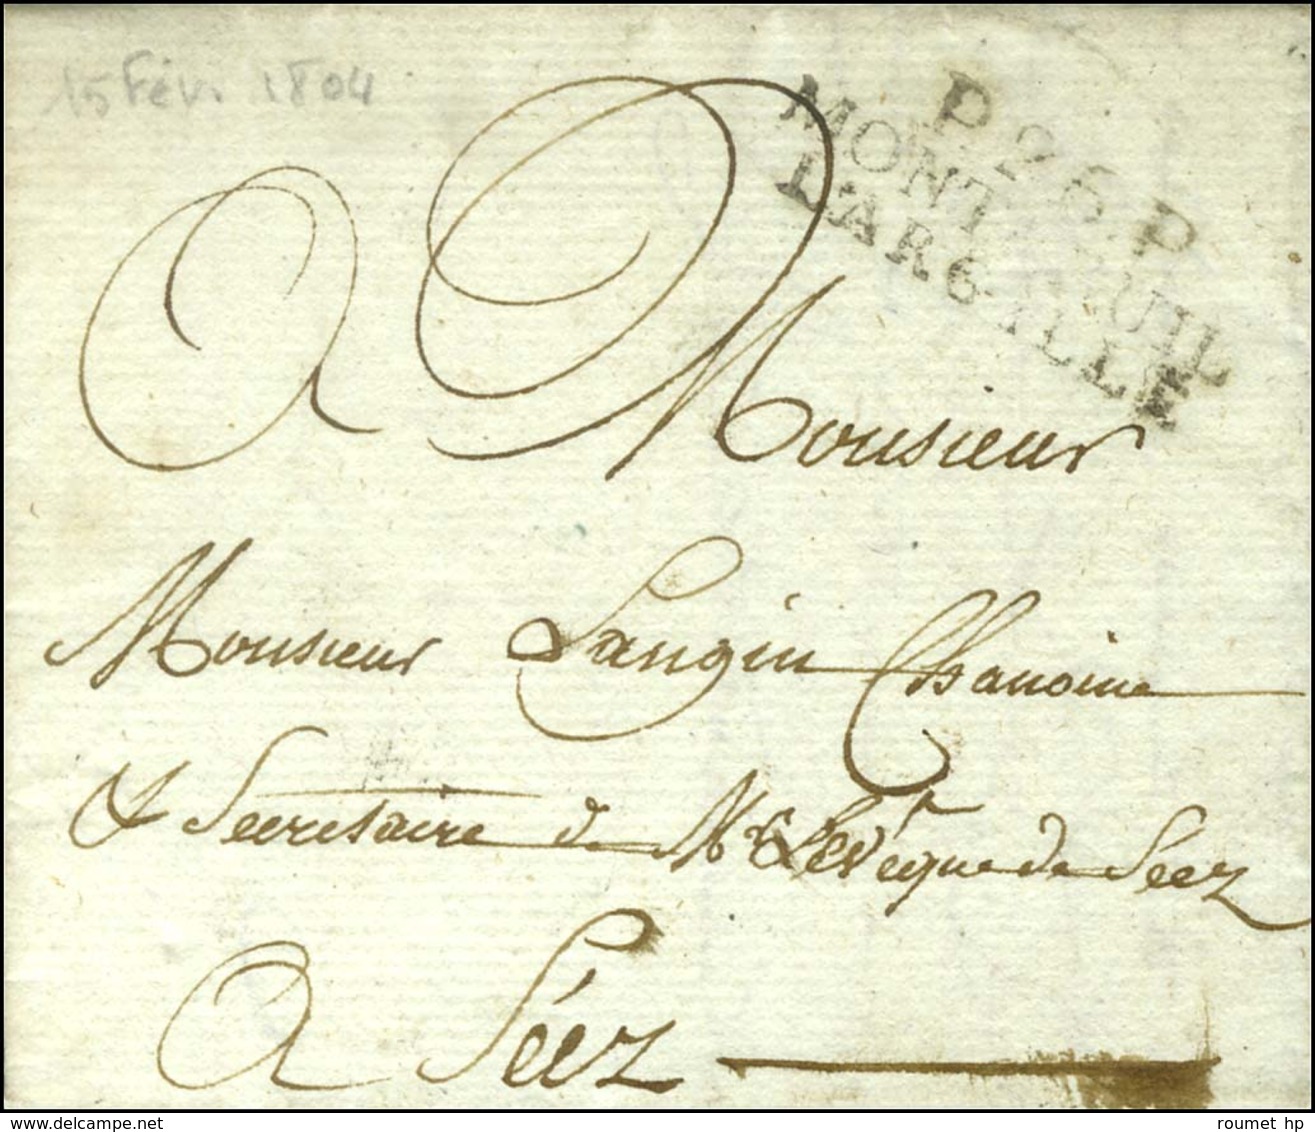 15 Févr 1804
P.26.P
MONTREUIL
L'ARGILLE
A Monsieur
Monsieur Langin Chanoine
& Secretaire de Mr L'evêque de Séez
A Séez
www.delcampe.net
roumet hp